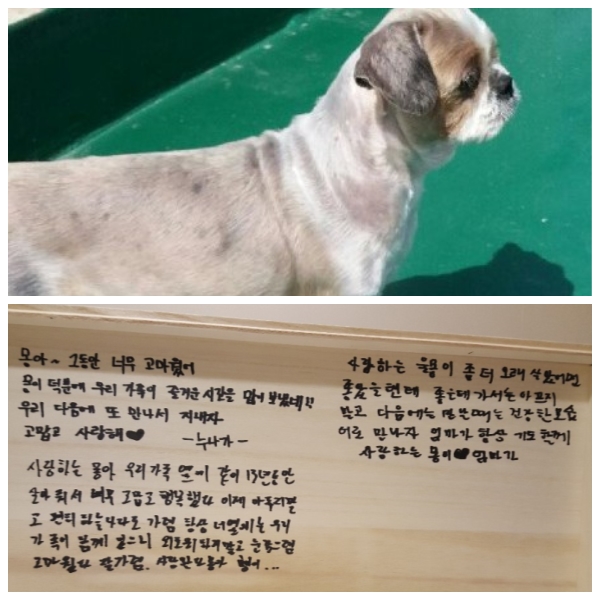 몽아~ 그동안 너무 고마웠어
몽이 덕분에 우리 가족이 즐거운 시간을 많이 보냈네!!
우리 다음에 또 만나서 지내자
고맙고 사랑해♥ -누나가-
사랑하는 몽아 우리가족 옆에 같이 13년동안
살아 줘서 너무 고맙고 행복했다 이제 아프지말
고 편히 하늘나라로 가렴 항상 너 옆에는 우리
가족이 함께 있으니 외로워 하지말고 눈
고마웠다 잘가렴. 몽아 형이...
사랑하는 몽이 좀 더 오래 살았으면
좋았을텐데 좋은데 가서는 아프지
말고 다음에는 만날때는 건강한모습
으로 만나자 엄마가 항상 기도할께
사랑하는 몽이♥엄마가